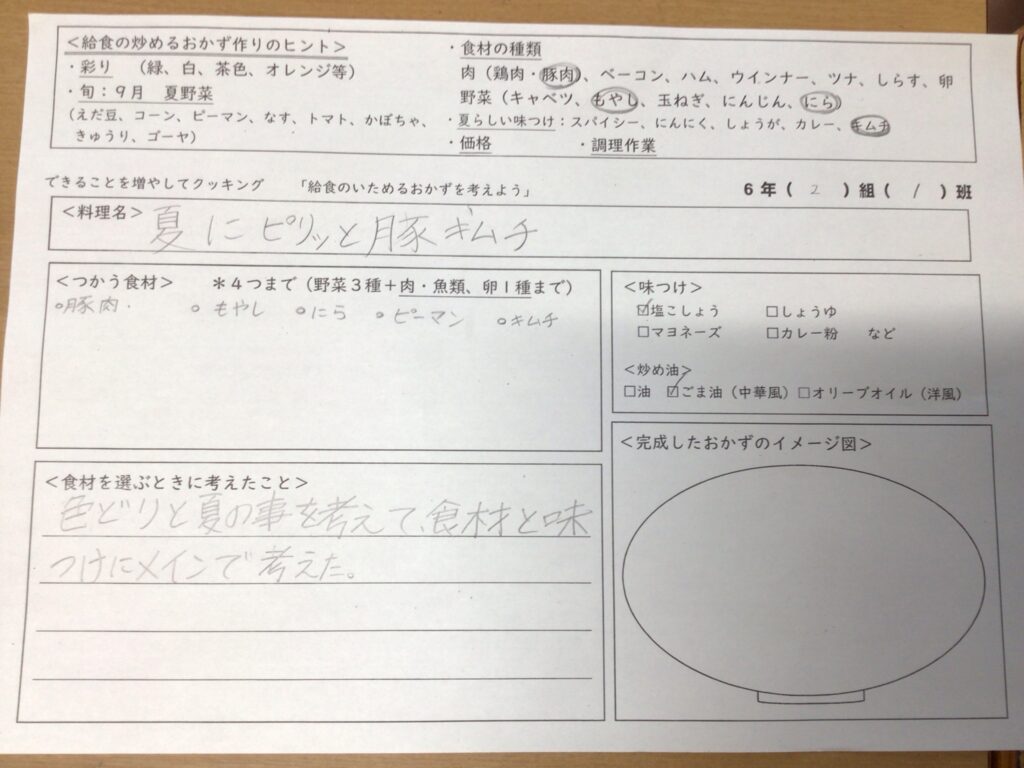 ＜給食の炒めるおかず作りのヒント＞
・彩り　（緑、白、茶色、オレンジ等）
・旬：９月　夏野菜
（えだ豆、コーン、ピーマン、なす、トマト、かぼちゃ、
きゅうり、ゴーヤ）
・食材の種類
肉（鶏肉・豚肉）、ベーコン、ハム、ウインナー、ツナ、しらす、卵
野菜（キャベツ、もやし、玉ねぎ、にんじん、にら）
・夏らしい味つけ：スパイシー、にんにく、しょうが、カレー、キムチ
・価格　　　　・調理作業
できることを増やしてクッキング　「給食のいためるおかずを考えよう」　６年（ 2 ）組（ 1 ）班
＜料理名＞ 夏にピリッと豚ギムチ
＜つかう食材＞　＊４つまで（野菜３種＋肉・魚類、卵１種まで）
○豚肉 ○もやし ○にら ○ピーマン ○キムチ
＜味つけ＞
☑塩こしょう　□しょうゆ
□マヨネーズ　□カレー粉　など
＜炒め油＞
□油　☑ごま油（中華風）□オリーブオイル（洋風）
＜食材を選ぶときに考えたこと＞
色どりと夏の事を考えて、食材と味
つけにメインで考えた。
＜完成したおかずのイメージ図＞